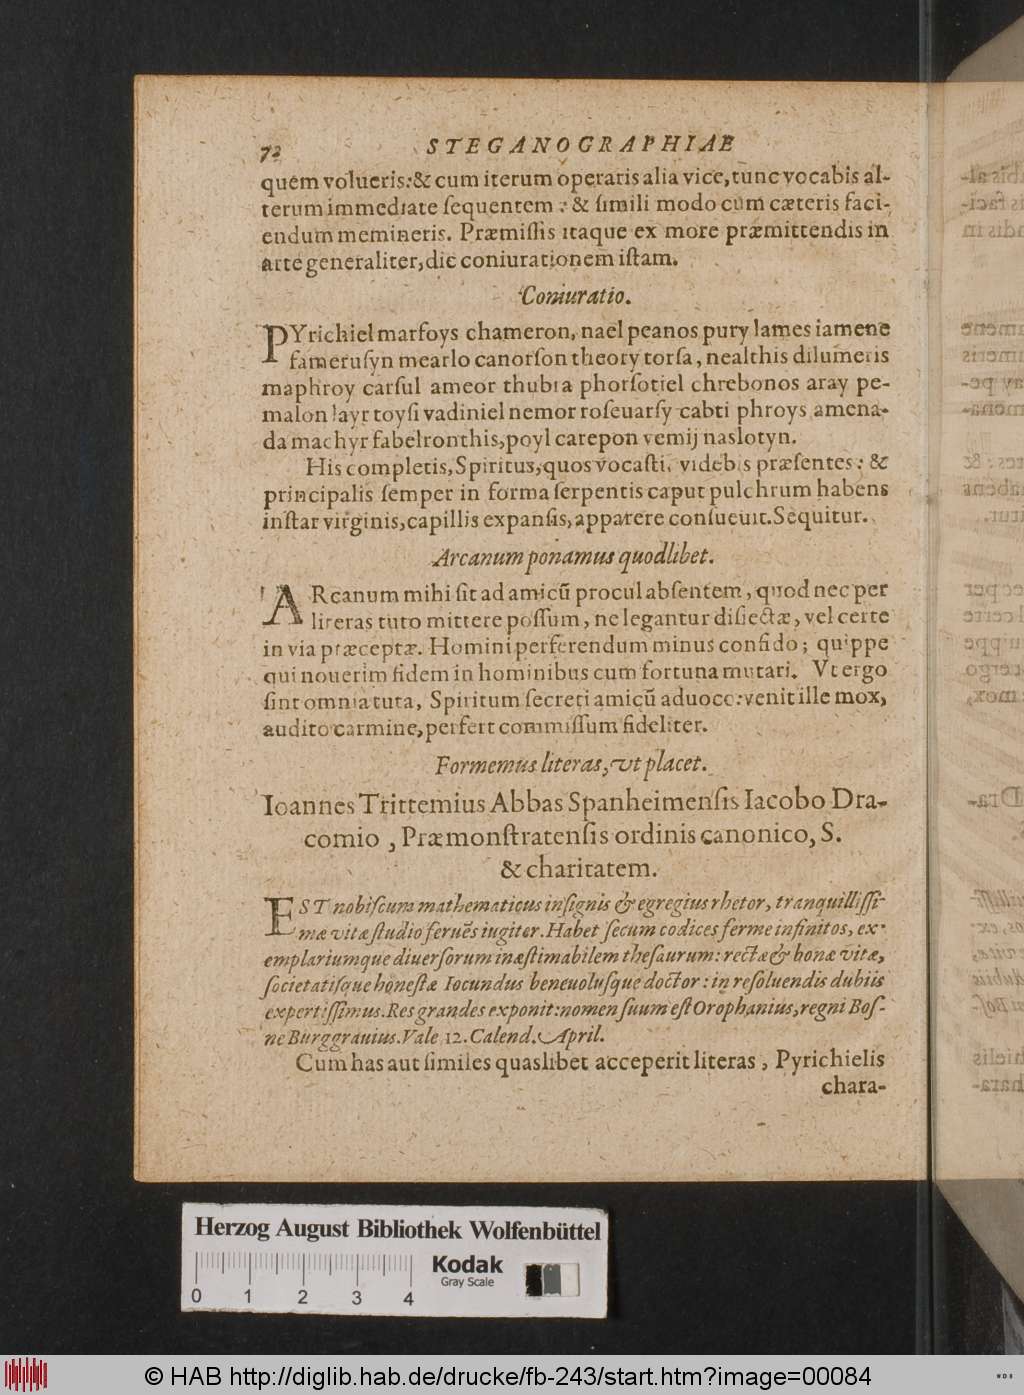 72 STEGANOGRAPHIAE
quem volueris: & cum iterum operaris alia vice, tunc vocabis al-
terum immediate ſequentem : & ſimili modo cum cæteris faci-
endum memineris. Præmiſſis itaque ex more præmittendis in
arte generaliter, dic coniurationem iſtam.
Coniuratio.
PYrichiel marfoys chameron, nael peanos pury lames iamene
famerusyn mearlo canorſon theory torſa, nealthis dilumeris
maphroy carſul ameor thubra phorſotiel chrebonos aray pe-
malon layr toyſi vadiniel nemor roſeuarſy cabti phroys amena-
da machyr fabelronthis, poyl carepon vemij naslotyn.
His completis, Spiritus, quos vocaſti, videbis præſentes : &
principalis ſemper in forma ſerpentis caput pulchrum habens
inſtar virginis, capillis expanſis, apparere conſueuit. Sequitur.
Arcanum ponamus quodlibet.
ARcanum mihi ſit ad amicũ procul abſentem, quod nec per
literas tuto mittere poſſum, ne legantur diſiectæ, vel certe
in via præceptæ. Homini perferendum minus confido; quippe
qui nouerim fidem in hominibus cum fortuna mutari. Vt ergo
ſint omnia tuta, Spiritum ſecreti amicũ aduoco: venit ille mox,
audito carmine, perfert commiſſum fideliter.
Formemus literas, vt placet.
Ioannes Trittemius Abbas Spanheimenſis Iacobo Dra-
comio, Præmonſtratenſis ordinis canonico, S.
& charitatem.
EST nobiſcum mathematicus inſignis & egregius rhetor, tranquilliſſi-
mæ vitæ ſtudio feruẽs iugiter. Habet ſecum codices ferme infinitos, ex-
emplariumque diuerſorum inæſtimabilem theſaurum: rectæ & bonæ vitæ,
ſocietatiſque honeſtæ Iocundus beneuoluſque doctor : in reſoluendis dubiis
expertiſſimus. Res grandes exponit: nomen ſuum eſt Orophanius, regni Boſ-
ne Burggrauius. Vale 12. Calend. April.
Cum has aut ſimiles quaslibet acceperit literas, Pyrichielis
chara-
Herzog August Bibliothek Wolfenbüttel
0 1 2 3 4
Kodak
Gray Scale
© HAB http://diglib.hab.de/drucke/fb-243/start.htm?image=00084